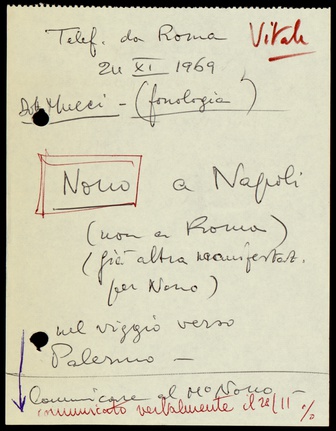 Telef. da Roma
Vitale
24 XI 1969
Dott Mucci - (fonologia)
Nono a Napoli
(non a Roma)
(già altra manifestaz.
per Nono)
nel viggio verso
Palermo —
Comunicare al Mº Nono —
comunicato verbalmente il 28/11